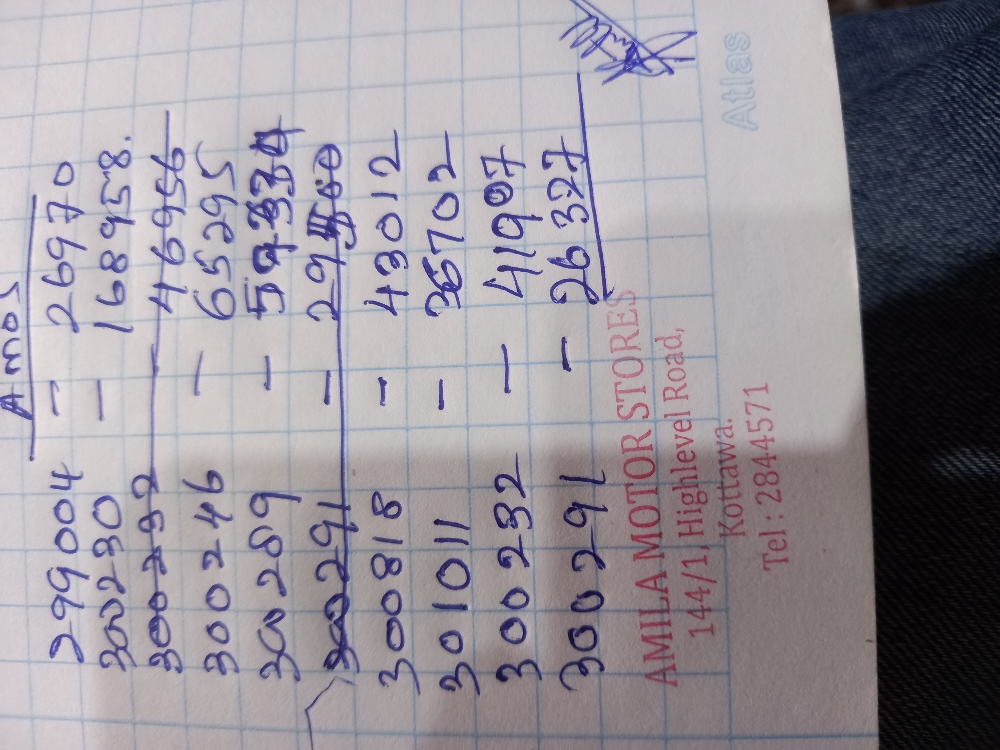 Amos
299004 - 26970
300230 - 168958.
300232 - 46956
300246 - 65295
300289 - 59334
300291
300818 - 43012
301011 - 36702
300232 - 41907
300291 - 26327
AMILA MOTOR STORES
144/1, Highlevel Road,
Kottawa.
Tel : 2844571
Atlas